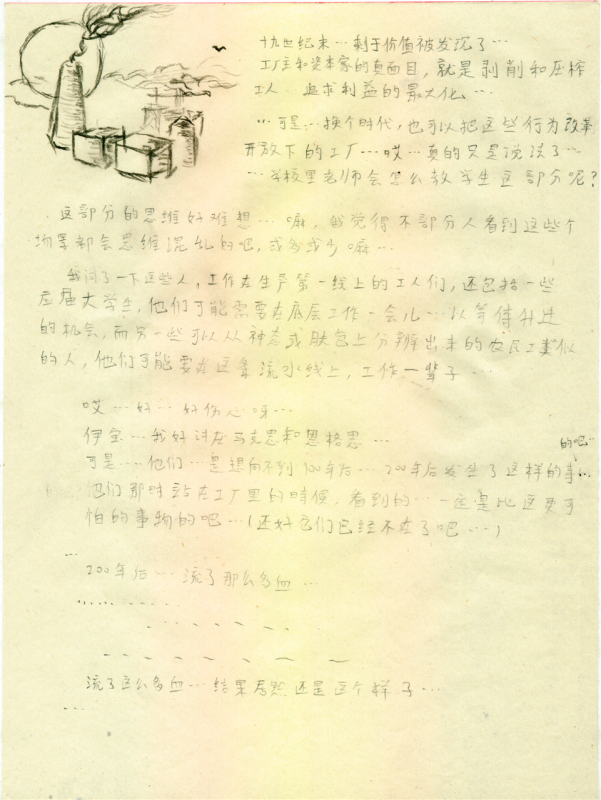 十九世纪末…剩于价值被发现了…
工厂主和资本家的真面目，就是剥削和压榨
工人 追求利益的最大化…
…可是…换个时代，也可以把这些行为改革
开放下的工厂…哎…真的只是说法了…
…学校里老师会怎么教学生这部分呢？
这部分的思维好难想…嘛，我觉得大部分人看到这些个
场景都会思维混乱的吧，或多或少嘛…
我问了一下这些人，工作在生产第一线上的工人们，还包括一些
应届大学生，他们可能需要在底层工作一会儿…以等待升迁
的机会，而另一些可以从神态或肤色上分辨出来的农民工类似
的人，他们可能要在这条流水线上，工作一辈子…
哎…好…好伤心呀…
伊宝…我好讨厌马克思和恩格思…
的吧
可是…他们…是想向不到100年后…200年后发生了这样的事…
他们那时站在工厂里的时候，看到的…一定是比这更可
怕的事物的吧…(还好它们已经不在了吧…)
…
200年后…流了那么多血…
流了这么多血…结果居然还是这个样子…
…